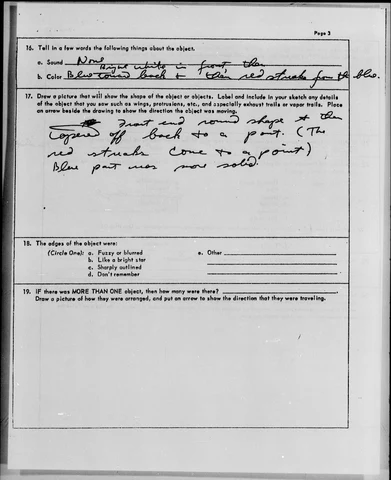 Page 3
16. Tell in a few words the following things about the object.
a. Sound None
Bright white in front then
b. Color Blue toward back & then red streaks from the blue.
17. Draw a picture that will show the shape of the object or objects. Label and include in your sketch any details
of the object that you saw such as wings, protrusions, etc., and especially exhaust trails or vapor trails. Place
an arrow beside the drawing to show the direction the object was moving.
Front end round shape & then
tapered off back to a point. (The
red streaks come to a point)
Blue part was more solid.
18. The edges of the object were:
(Circle One): a. Fuzzy or blurred e. Other
b. Like a bright star
c. Sharply outlined
d. Don't remember
19. IF there was MORE THAN ONE object, then how many were there?
Draw a picture of how they were arranged, and put an arrow to show the direction that they were traveling.